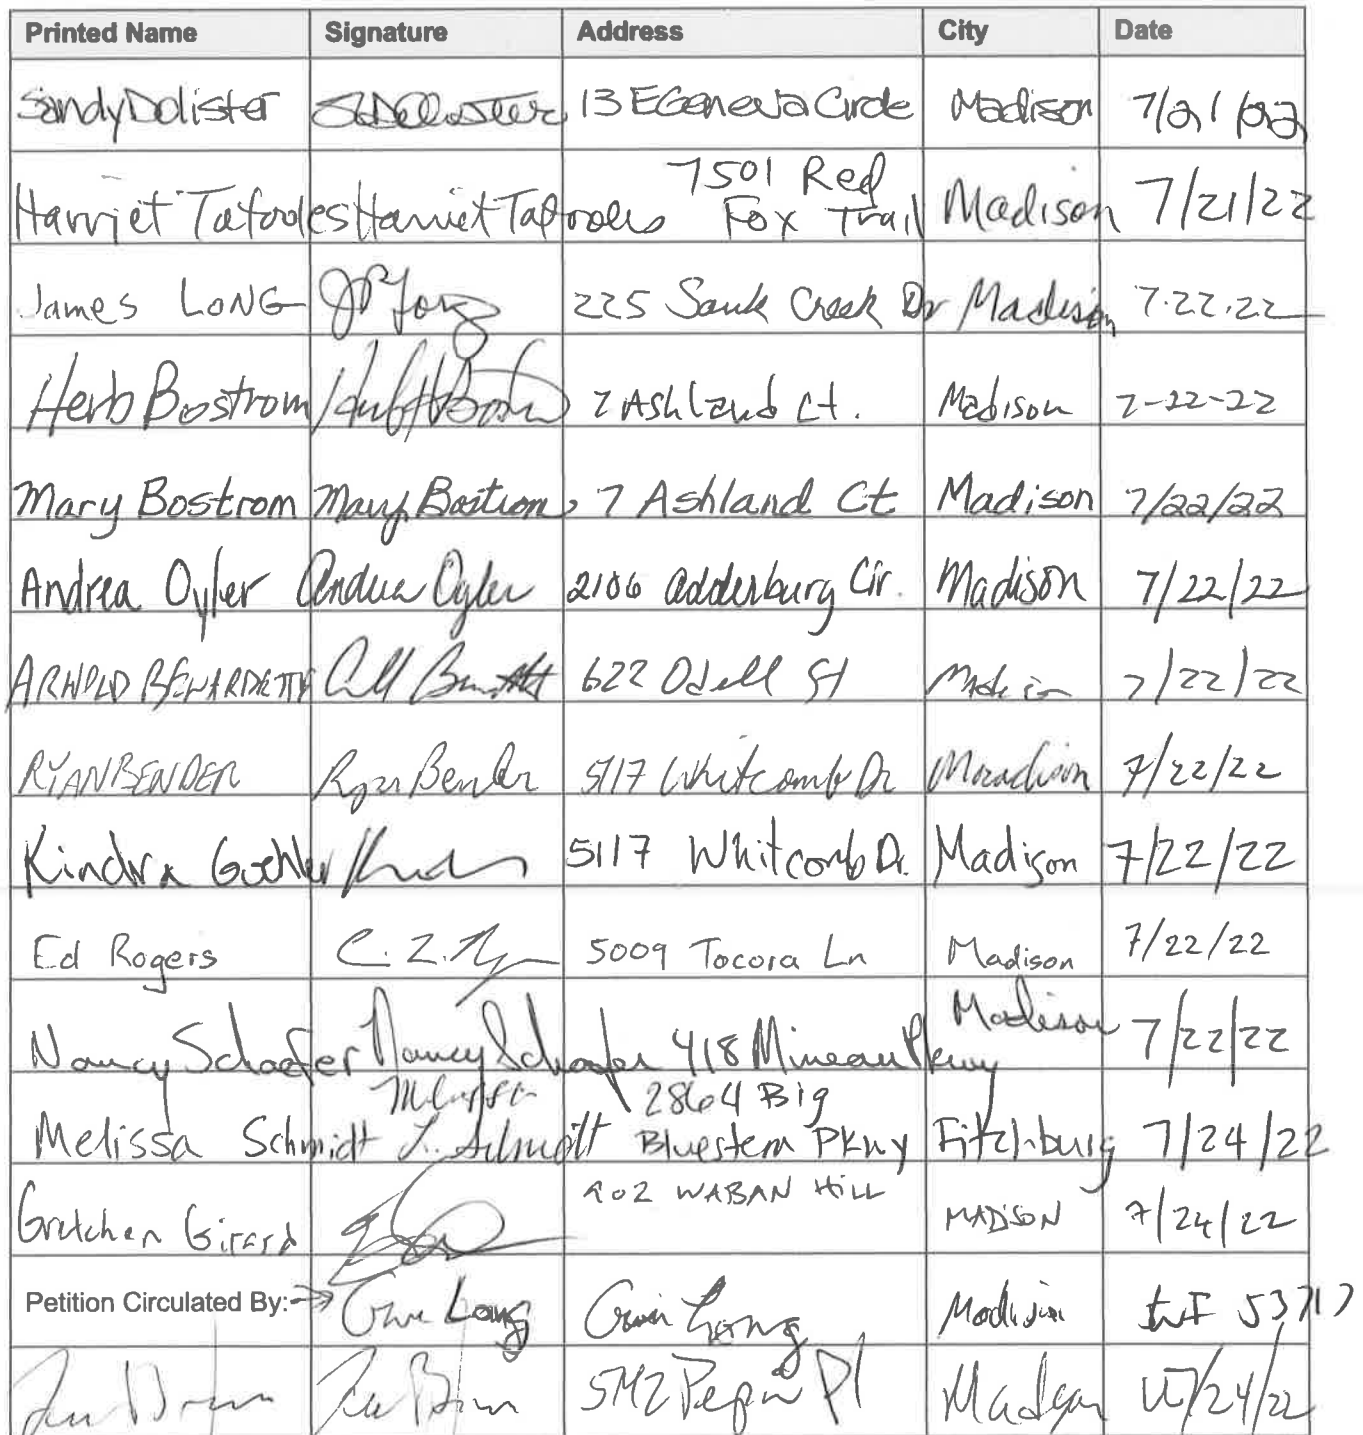 Printed Name Signature Address City Date
Sandy Dolister 13 E Geneva Circle Madison 7/21/22
7501 Red
Harriet Tafooles Harriet Tafooles Fox Trail Madison 7/21/22
James LONG JP Long 225 Sauk Creek Dr Madison 7.22.22
Herb Bostrom 7 Ashland Ct. Madison 7-22-22
Mary Bostrom Mary Bostrom 7 Ashland Ct Madison 7/22/22
Andrea Oyler Andrea Oyler 2106 Adderburg Cir. Madison 7/22/22
ARNOLD 622 Odell St Madison 7/22/22
RYAN BENDER Ryan Bender 5117 Whitcomb Dr 7/22/22
Kindra 5117 Whitcomb Dr. Madison 7/22/22
Ed Rogers 5009 Tocora Ln Madison 7/22/22
Nancy Schaefer Nancy Schaefer 418 Mineau Pkwy Madison 7/22/22
Melissa 2864 Big
Melissa Schmidt L. Schmidt Bluestem Pkwy Fitchburg 7/24/22
902 WABAN HILL
Gretchen Girard MADISON 7/24/22
Petition Circulated By: Long Long Madison WI 53717
Pepin Pl Madison 7/24/22